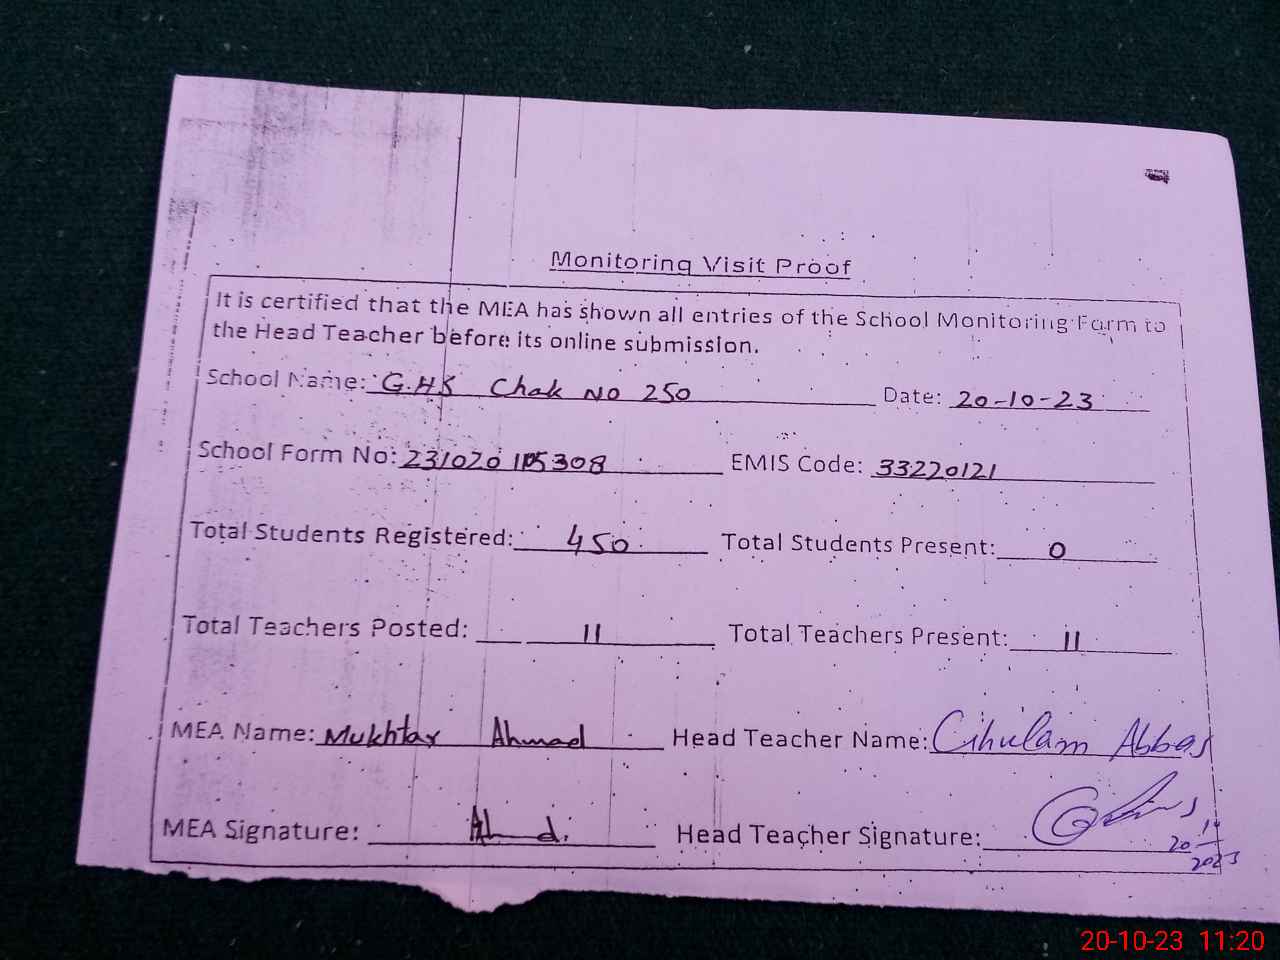 Monitoring Visit Proof
It is certified that the MEA has shown all entries of the School Monitoring Form to
the Head Teacher before its online submission.
School Name: G.HS Chak No 250 Date: 20-10-23
School Form No: 231020105308 EMIS Code: 33220121
Total Students Registered: 450 Total Students Present: 0
Total Teachers Posted: 11 Total Teachers Present: 11
MEA Name: Mukhtar Ahmad Head Teacher Name: Ghulam Abbas
MEA Signature: Ahmad. Head Teacher Signature:
20
2023
20-10-23 11:20